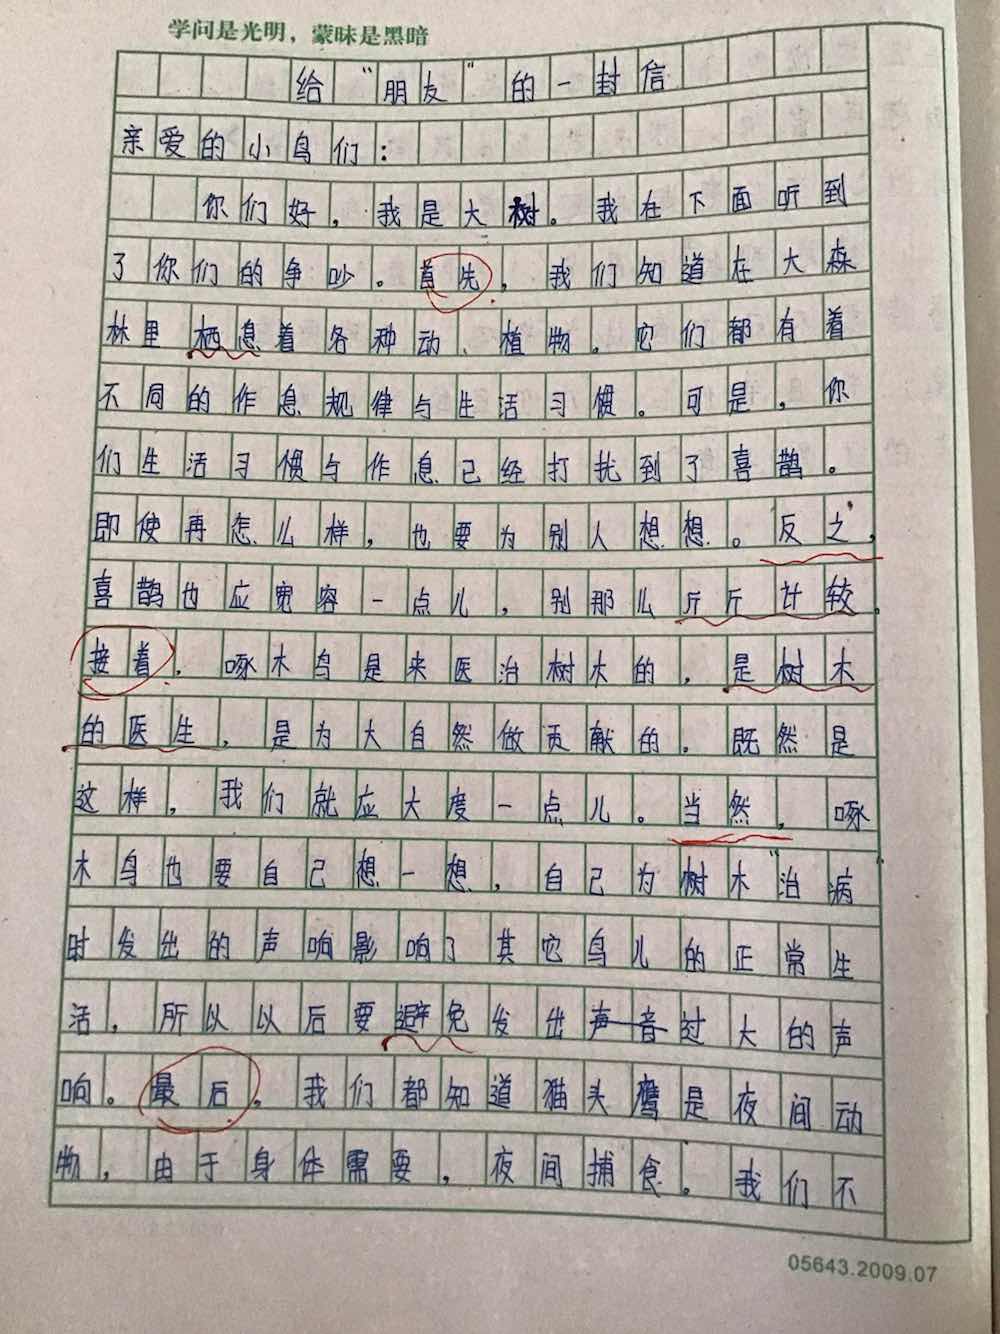 学问是光明，蒙昧是黑暗
给“朋友”的一封信
亲爱的小鸟们：
你们好，我是大树。我在下面听到
了你们的争吵。首先，我们知道在大森
林里栖息着各种动、植物。它们都有着
不同的作息规律与生活习惯。可是，你
们生活习惯与作息已经打扰到了喜鹊。
即使再怎么样，也要为别人想想。反之，
喜鹊也应宽容一点儿，别那么斤斤计较。
接着，啄木鸟是来医治树木的，是树木
的医生，是为大自然做贡献的。既然是
这样，我们就应大度一点儿。当然，啄
木鸟也要自己想一想，自己为树木“治病”
时发出的声响影响了其它鸟儿的正常生
活，所以以后要避免发出声音过大的声
响。最后，我们都知道猫头鹰是夜间动
物，由于身体需要，夜间捕食。我们不
05643.2009.07